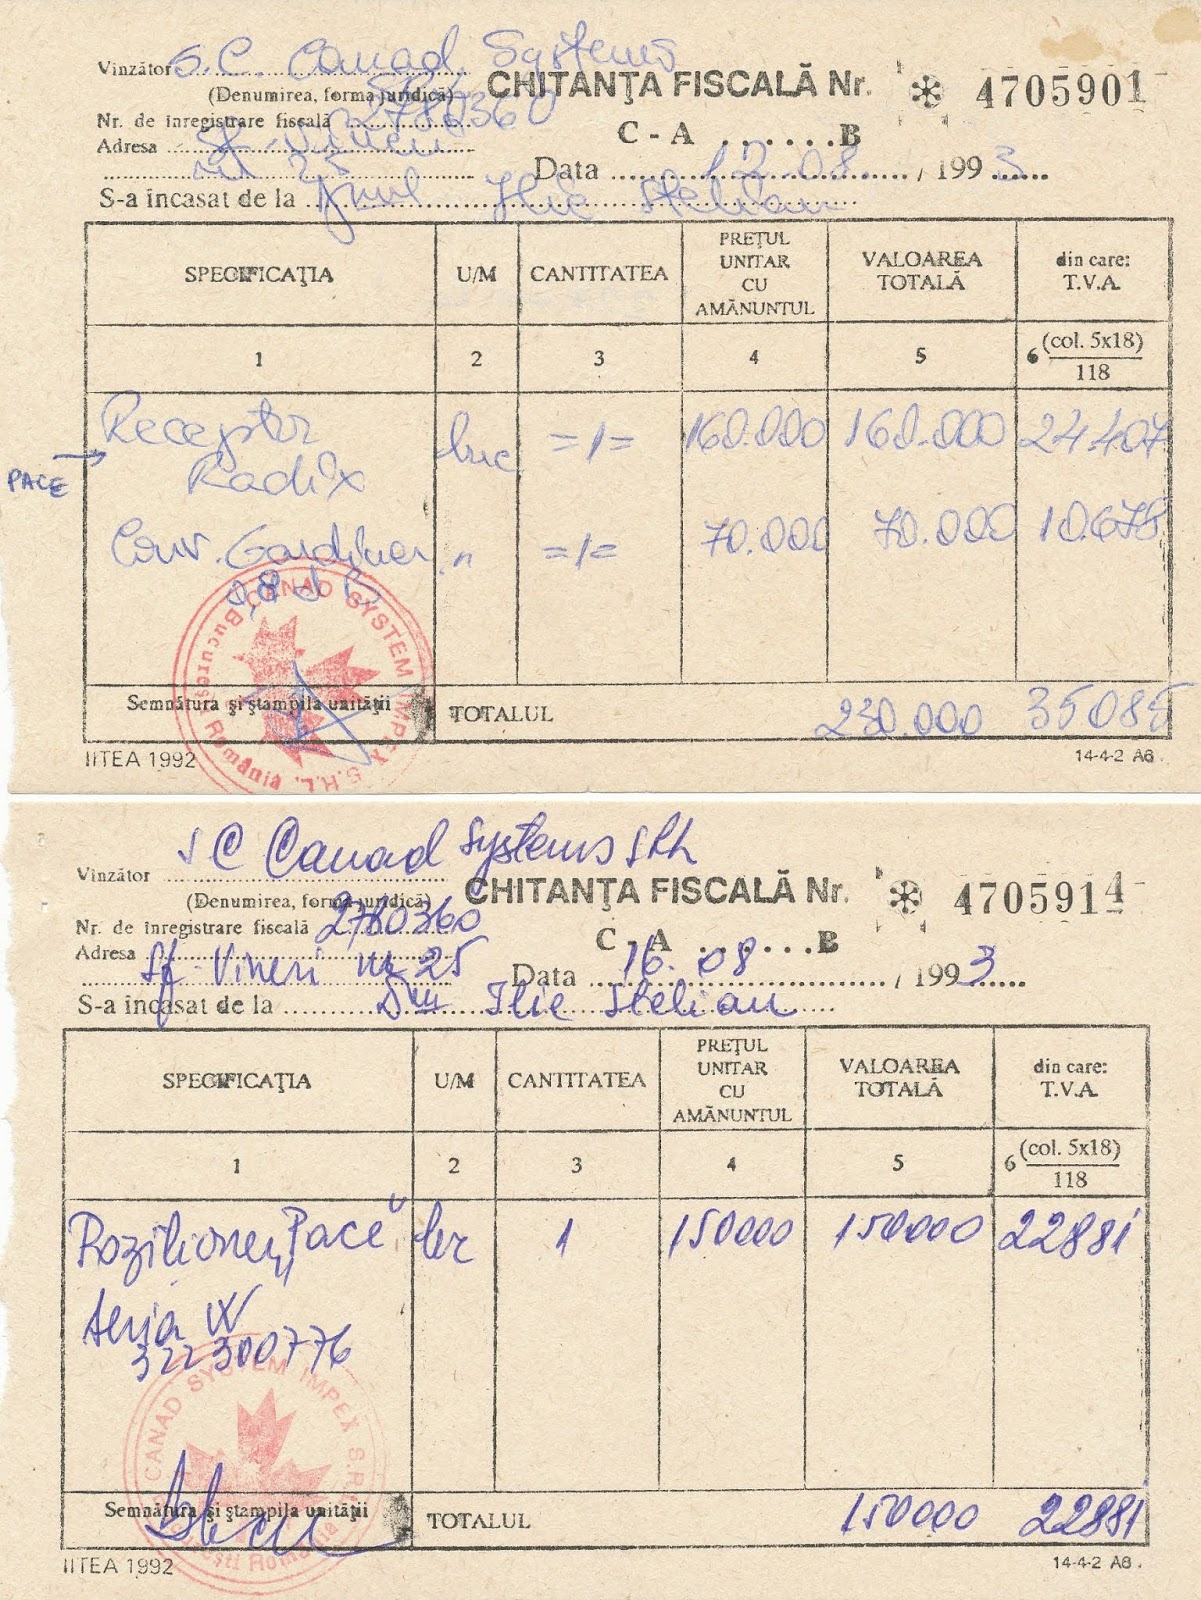 Vînzător S.C. Canad Systems
(Denumirea, forma juridică)
CHITANŢA FISCALĂ Nr. 4705901
Nr. de înregistrare fiscală 2780360
C - A ....... B
Adresa Sf. Vineri
nr 25
Data 12.08 / 1993
S-a încasat de la Dnul Ilie Stelian
SPECIFICAŢIA U/M CANTITATEA PREŢUL UNITAR CU AMĂNUNTUL VALOAREA TOTALĂ din care: T.V.A.
1 2 3 4 5 6 (col. 5x18)
118
Receptor buc =1= 160.000 160.000 24.407
PACE Radix
Conv. Gardiner " =1= 70.000 70.000 10.678
0,8 d
CANAD SYSTEM IMPEX S.R.L. Bucureşti România
Semnătura şi ştampila unităţii TOTALUL 230.000 35085
IITEA 1992 14-4-2 A6.
Vînzător SC Canad Systems SRL
(Denumirea, forma juridică)
CHITANŢA FISCALĂ Nr. 4705914
Nr. de înregistrare fiscală 2780360
C - A ....... B
Adresa Sf. Vineri nr 25
Data 16.08 / 1993
S-a încasat de la Dnul Ilie Stelian
SPECIFICAŢIA U/M CANTITATEA PREŢUL UNITAR CU AMĂNUNTUL VALOAREA TOTALĂ din care: T.V.A.
1 2 3 4 5 6 (col. 5x18)
118
Pozitioner „Pace" buc 1 150000 150000 22881
Seria W
322300776
CANAD SYSTEM IMPEX S.R.L. Bucureşti România
Semnătura şi ştampila unităţii TOTALUL 150000 22881
IITEA 1992 14-4-2 A6.